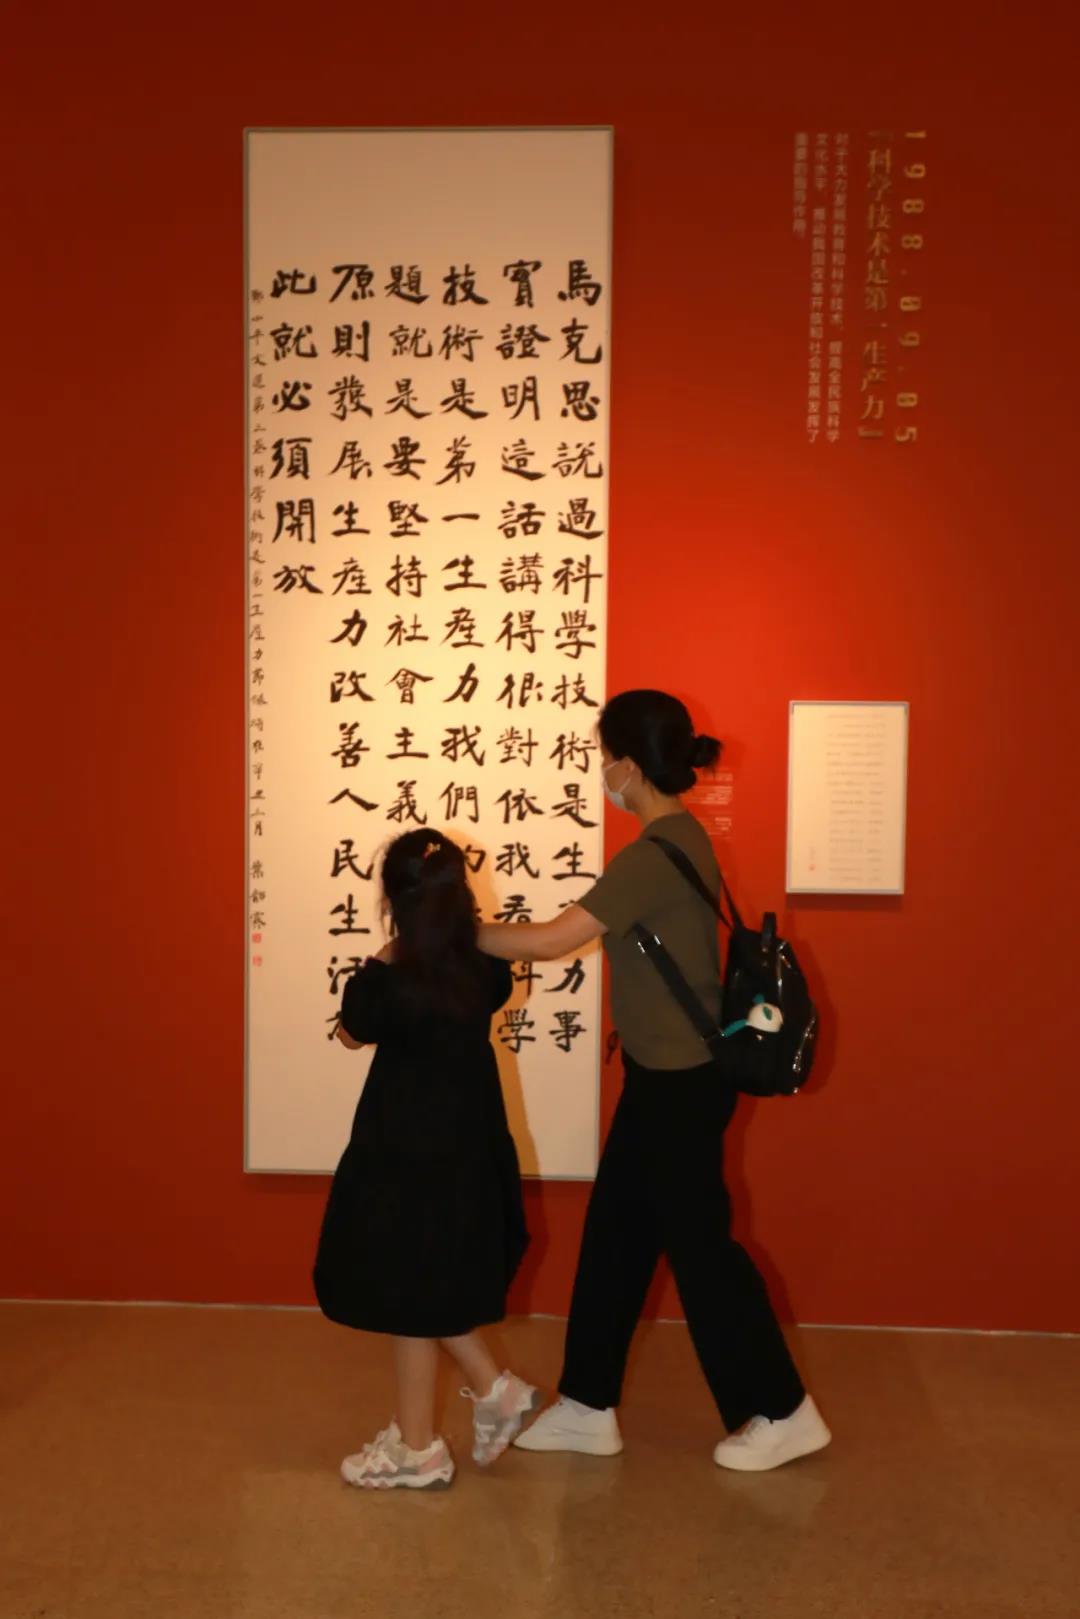 1988.09.05
『科学技术是第一生产力』
对于大力发展教育和科学技术、提高全民族科学
文化水平、推动我国改革开放和社会发展发挥了
重要的指导作用。
馬克思説過科學技術是生力事
實證明這話講得很對依我看科學
技術是第一生產力我們
題就是要堅持社會主義
原則發展生產力改善人民生活
此就必須開放
鄧小平文選第三卷科學技術是第一生產力節錄時在辛丑三月 葉韶霖